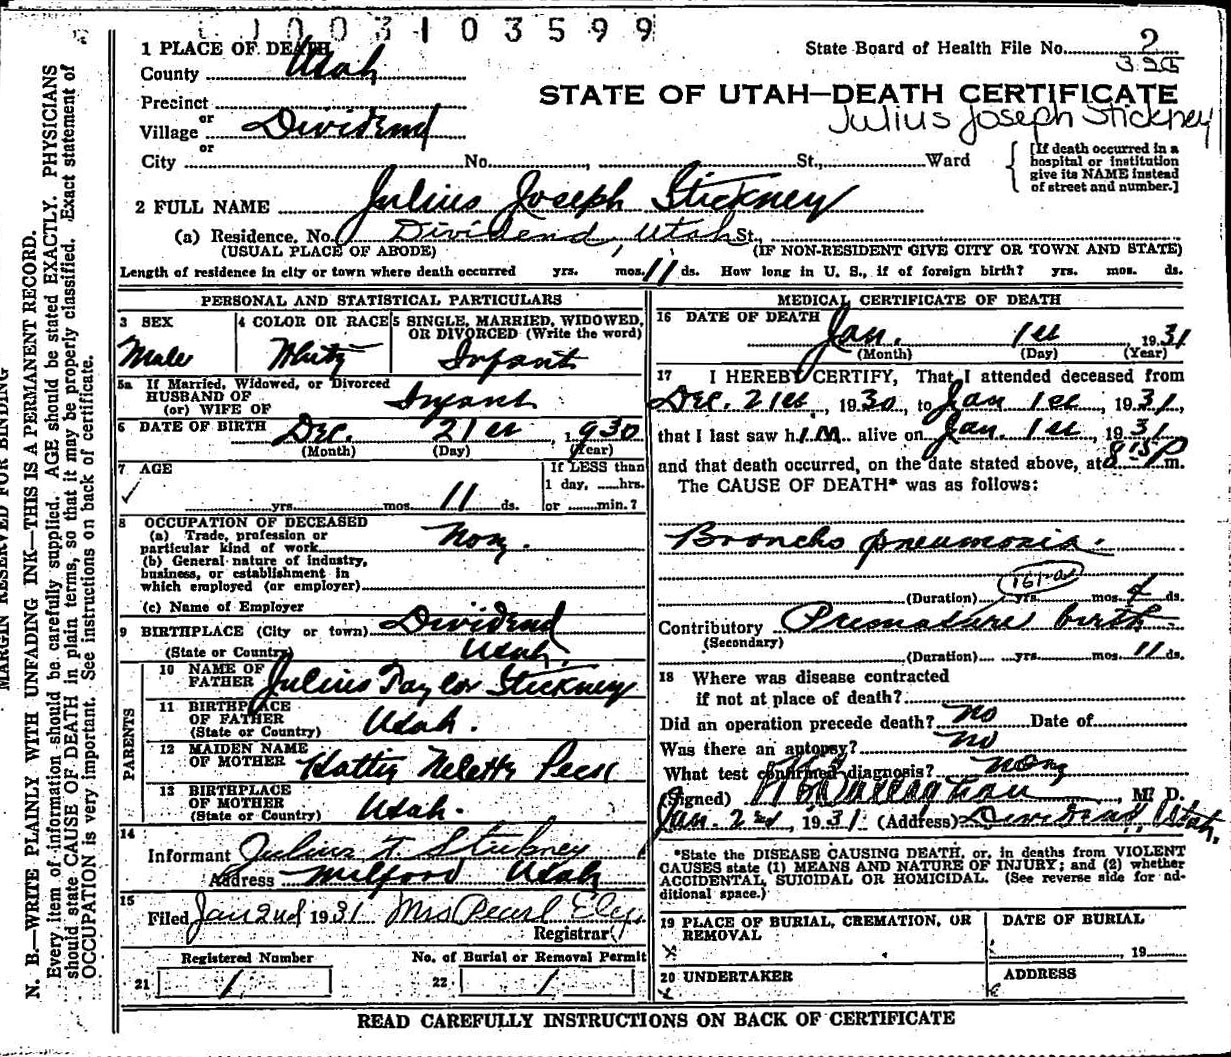 1003103599
State Board of Health File No. 2
1 PLACE OF DEATH
County Utah
STATE OF UTAH—DEATH CERTIFICATE
Julius Joseph Stickney
Precinct
or
Village Dividend
or
City No. , St., Ward
[If death occurred in a
hospital or institution
give its NAME instead
of street and number.]
2 FULL NAME Julius Joseph Stickney
(a) Residence, No. Dividend, Utah St.,
(USUAL PLACE OF ABODE) (IF NON-RESIDENT GIVE CITY OR TOWN AND STATE)
Length of residence in city or town where death occurred yrs. mos. 11 ds. How long in U. S., if of foreign birth? yrs. mos. ds.
PERSONAL AND STATISTICAL PARTICULARS
3 SEX
Male
4 COLOR OR RACE
White
5 SINGLE, MARRIED, WIDOWED,
OR DIVORCED (Write the word)
Infant
5a If Married, Widowed, or Divorced
HUSBAND OF
(or) WIFE OF Infant
6 DATE OF BIRTH Dec. 21st, 1930
(Month) (Day) (Year)
7 AGE
yrs. mos. 11 ds.
If LESS than
1 day, hrs.
or min.?
8 OCCUPATION OF DECEASED
(a) Trade, profession or
particular kind of work None.
(b) General nature of industry,
business, or establishment in
which employed (or employer)
(c) Name of Employer
9 BIRTHPLACE (City or town) Dividend
(State or Country) Utah.
PARENTS
10 NAME OF
FATHER Julius Taylor Stickney
11 BIRTHPLACE
OF FATHER
(State or Country) Utah.
12 MAIDEN NAME
OF MOTHER Hattie
13 BIRTHPLACE
OF MOTHER
(State or Country) Utah.
14
Informant Julius T. Stickney
Address Milford Utah
15
Filed Jan 2nd 1931 Mrs Pearl
Registrar
Registered Number
21 1
No. of Burial or Removal Permit
22 1
MEDICAL CERTIFICATE OF DEATH
16 DATE OF DEATH
Jan. 1st, 1931
(Month) (Day) (Year)
17 I HEREBY CERTIFY, That I attended deceased from
Dec. 21st, 1930, to Jan 1st, 1931,
that I last saw h.IM. alive on Jan. 1st, 1931
and that death occurred, on the date stated above, at 815P m.
The CAUSE OF DEATH* was as follows:
Broncho pneumonia.
161-a
(Duration) yrs. mos. ds.
Contributory Premature birth
(Secondary)
(Duration) yrs. mos. 11 ds.
18 Where was disease contracted
if not at place of death?
Did an operation precede death? No Date of
Was there an autopsy? No
What test confirmed diagnosis? None
(Signed) , M. D.
Jan. 2nd, 1931 (Address) Dividend, Utah.
*State the DISEASE CAUSING DEATH, or, in deaths from VIOLENT
CAUSES state (1) MEANS AND NATURE OF INJURY; and (2) whether
ACCIDENTAL, SUICIDAL OR HOMICIDAL. (See reverse side for ad-
ditional space.)
19 PLACE OF BURIAL, CREMATION, OR
REMOVAL
DATE OF BURIAL
19
20 UNDERTAKER
ADDRESS
READ CAREFULLY INSTRUCTIONS ON BACK OF CERTIFICATE
MARGIN RESERVED FOR BINDING
N. B.—WRITE PLAINLY WITH UNFADING INK—THIS IS A PERMANENT RECORD.
Every item of information should be carefully supplied. AGE should be stated EXACTLY. PHYSICIANS
should state CAUSE OF DEATH in plain terms, so that it may be properly classified. Exact statement of
OCCUPATION is very important. See instructions on back of certificate.